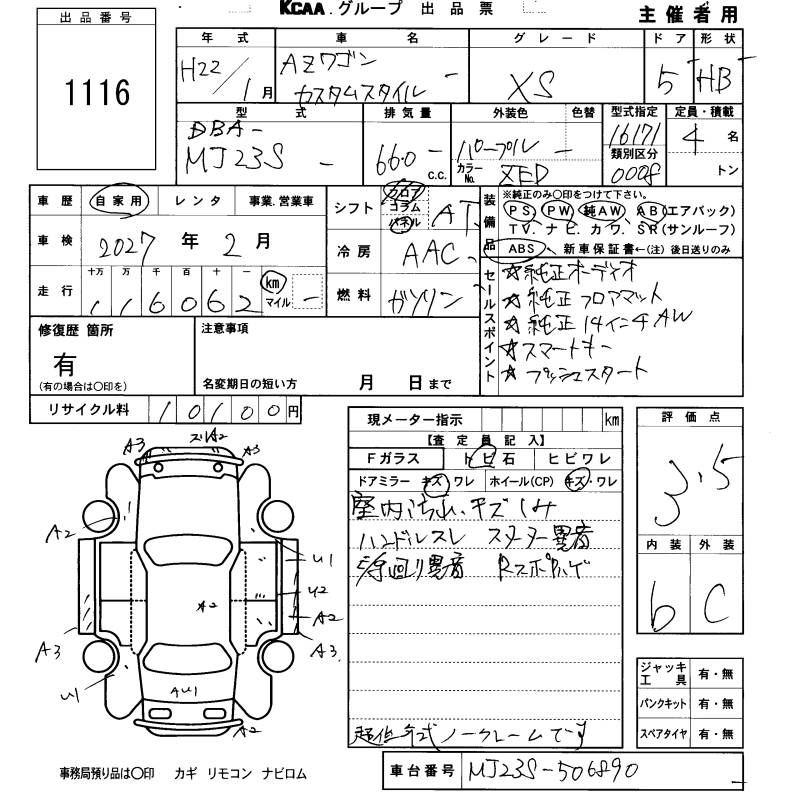 KCAA.グループ 出品票
主催者用
出品番号
1116
年式 車名 グレード ドア 形状
H22/1月 AZワゴン カスタムスタイル XS 5 HB
型式 排気量 外装色 色替 型式指定 定員・積載
DBA-
MJ23S - 660 - c.c. パープル カラーNo. 16171 4名
類別区分 0008 トン
車歴 自家用 レンタ 事業.営業車
車検 2027年 2月
走行 十万 万 千 百 十 一
116062 km マイル -
シフト フロア コラム パネル AT
冷房 AAC
燃料 ガソリン
装備品 ※純正のみ〇印をつけて下さい。
PS PW 純AW AB(エアバック)
TV. ナビ. カワ. SR(サンルーフ)
ABS 新車保証書←(注) 後日送りのみ
セールスポイント
☆純正オーディオ
☆純正フロアマット
☆純正14インチAW
☆スマートキー
☆プッシュスタート
修復歴 箇所
有
(有の場合は〇印を)
注意事項
名変期日の短い方 月 日まで
リサイクル料 10100円
現メーター指示 km
【査定員記入】
Fガラス トビ石 ヒビワレ
ドアミラー キズ ワレ ホイール(CP) キズ・ワレ
室内汚れ.キズ しみ
ハンドルスレ スターター異音
異音
超低年式 ノークレームです
評価点
3.5
内装 外装
6 C
ジャッキ工具 有・無
パンクキット 有・無
スペアタイヤ 有・無
A3 A2 A3
A2
U1
U2
A2 A2
A3 A3
U1
AU1
A2
事務局預り品は〇印 カギ リモコン ナビロム
車台番号 MJ23S-506890